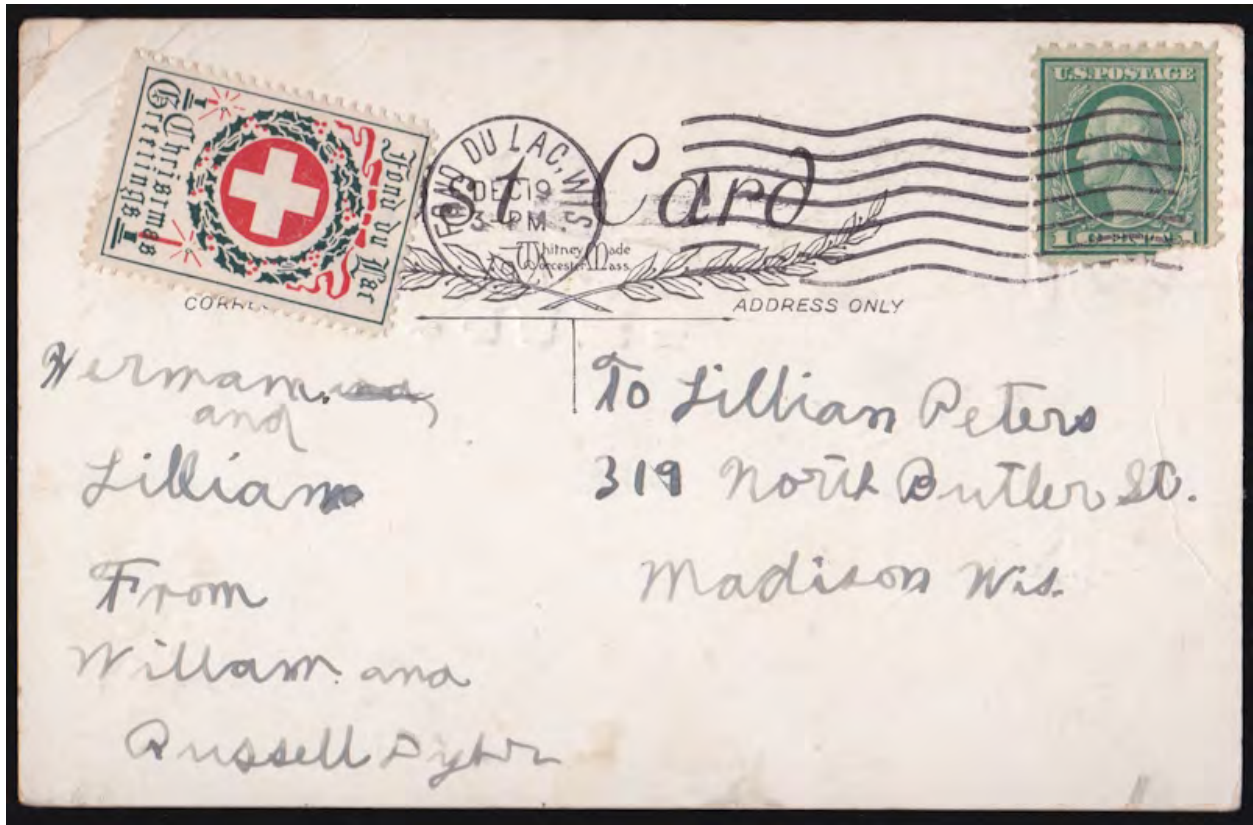 Christmas
Greetings
Fond du Lac
FOND DU LAC, WIS.
DEC 19
3- PM
st Card
Whitney Made
Worcester Mass.
U.S. POSTAGE
1
ADDRESS ONLY
Herman.
and
Lillian
From
Willam and
Russell
To Lillian Peters
319 North Butler St.
Madison Wis.